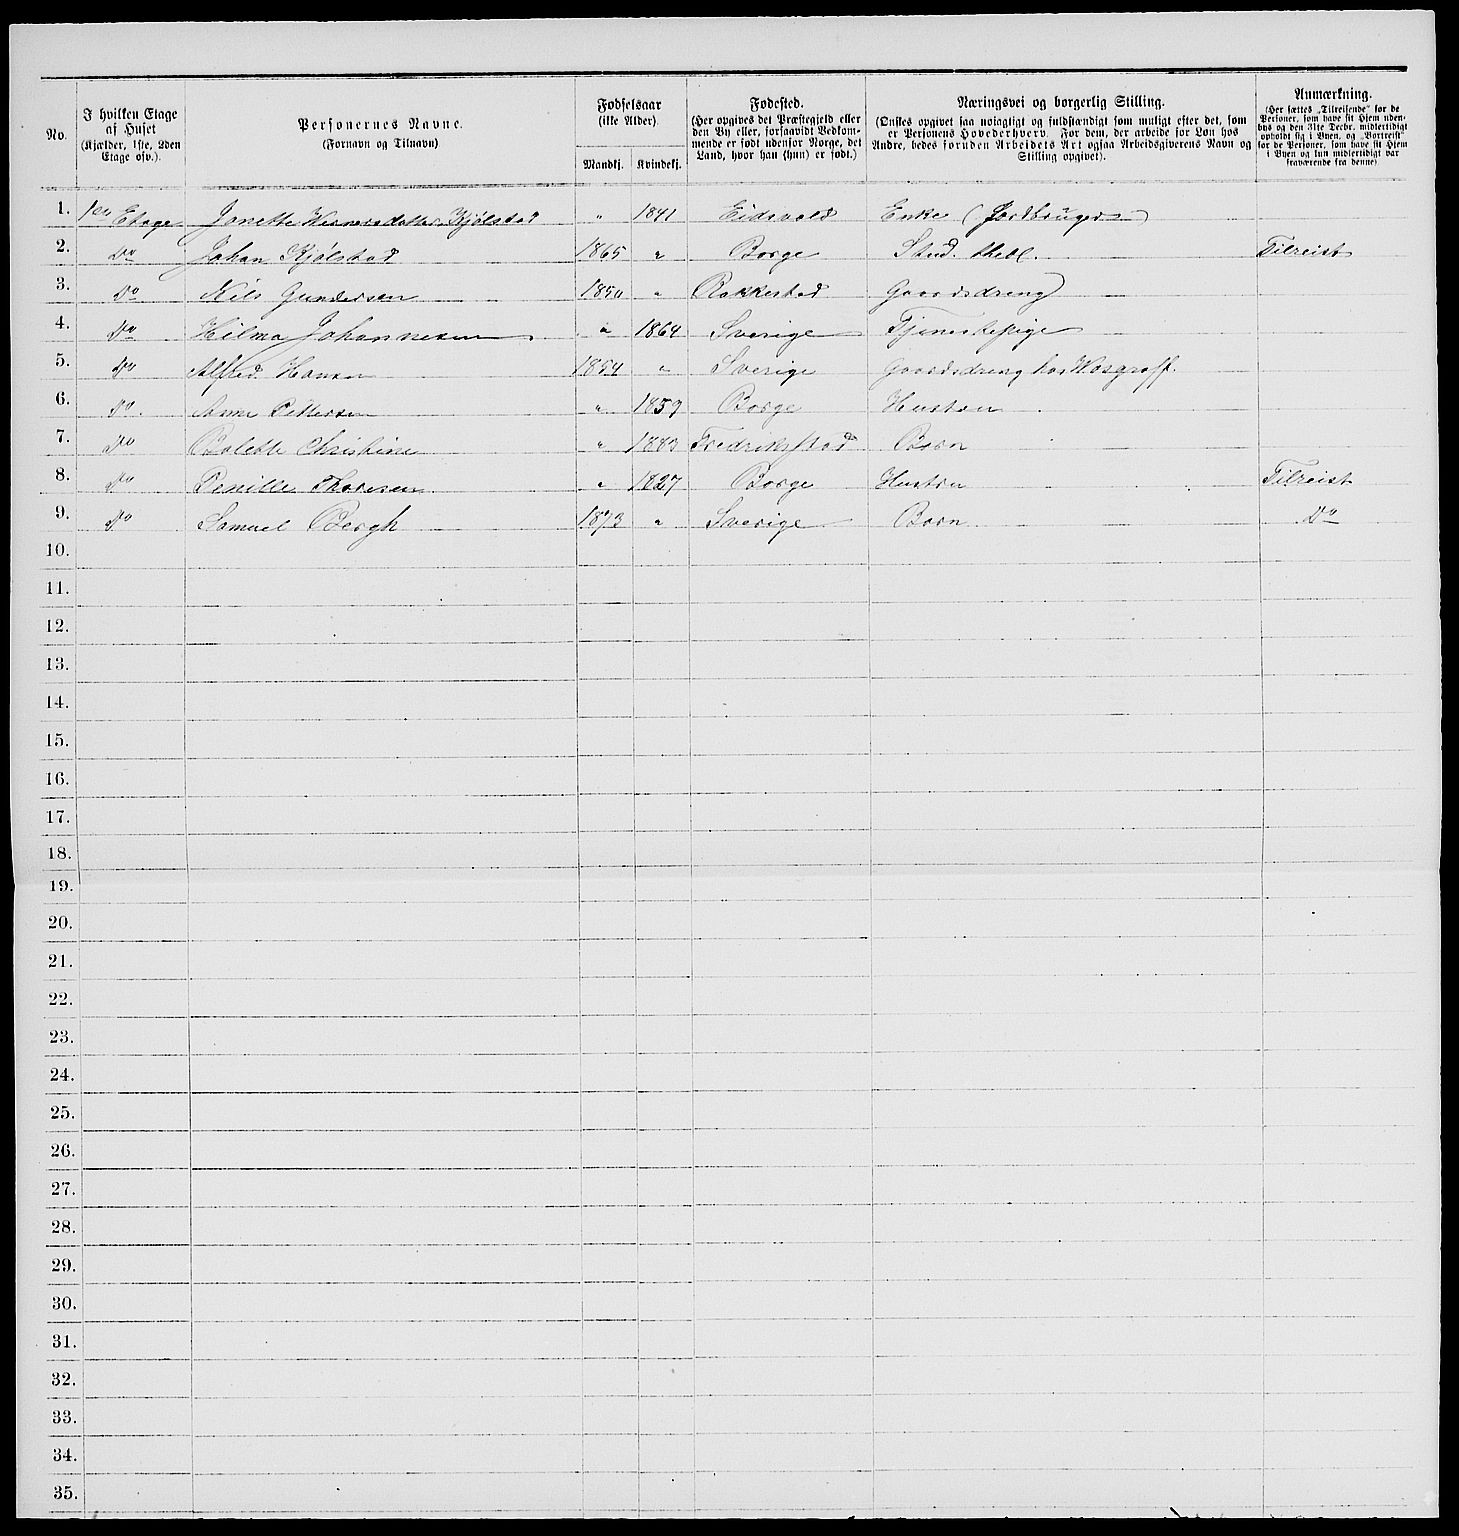 No.
I hvilken Etage af Huset (Kjælder, 1ste, 2den Etage osv.).
Personernes Navne. (Fornavn og Tilnavn)
Fødselsaar (ikke Alder). Mandkj. Kvindekj.
Fødested. (Her opgives det Præstegjeld eller den By eller, forsaavidt Vedkommende er født udenfor Norge, det Land, hvor han (hun) er født.)
Næringsvei og borgerlig Stilling. (Ønskes opgivet saa nøiagtigt og fuldstændigt som muligt efter det, som er Personens Hovederhverv. For dem, der arbeide for Løn hos Andre, bedes foruden Arbeidets Art ogsaa Arbeidsgiverens Navn og Stilling opgivet).
Anmærkning. (Her sættes „Tilreisende“ for de Personer, som have sit Hjem udenbys og den 31te Decbr. midlertidigt opholdt sig i Byen, og „Bortreist“ for de Personer, som have sit Hjem i Byen og kun midlertidigt var fraværende fra denne)
1. 1ste Etage Janette Kjølstad " 1841 Eidsvold Enke (Jordbruger)
2. Do Johan Kjølstad 1865 " Borge Stud. theol. Tilreist
3. Do Nils Gundersen 1850 " Rakkestad Gaardsdreng
4. Do Hilma Johannesen " 1864 Sverige Tjenestepige
5. Do Alfred Hansen 1854 " Sverige Gaardsdreng hos
6. Do. Anne Pettersen " 1859 Borge Hustru
7. Do Bolette Christine " 1883 Fredrikstad Barn
8. Do Pernille Thoresen " 1827 Borge Hustru Tilreist
9. Do Samuel Bergh 1873 " Sverige Barn Do
10.
11.
12.
13.
14.
15.
16.
17.
18.
19.
20.
21.
22.
23.
24.
25.
26.
27.
28.
29.
30.
31.
32.
33.
34.
35.